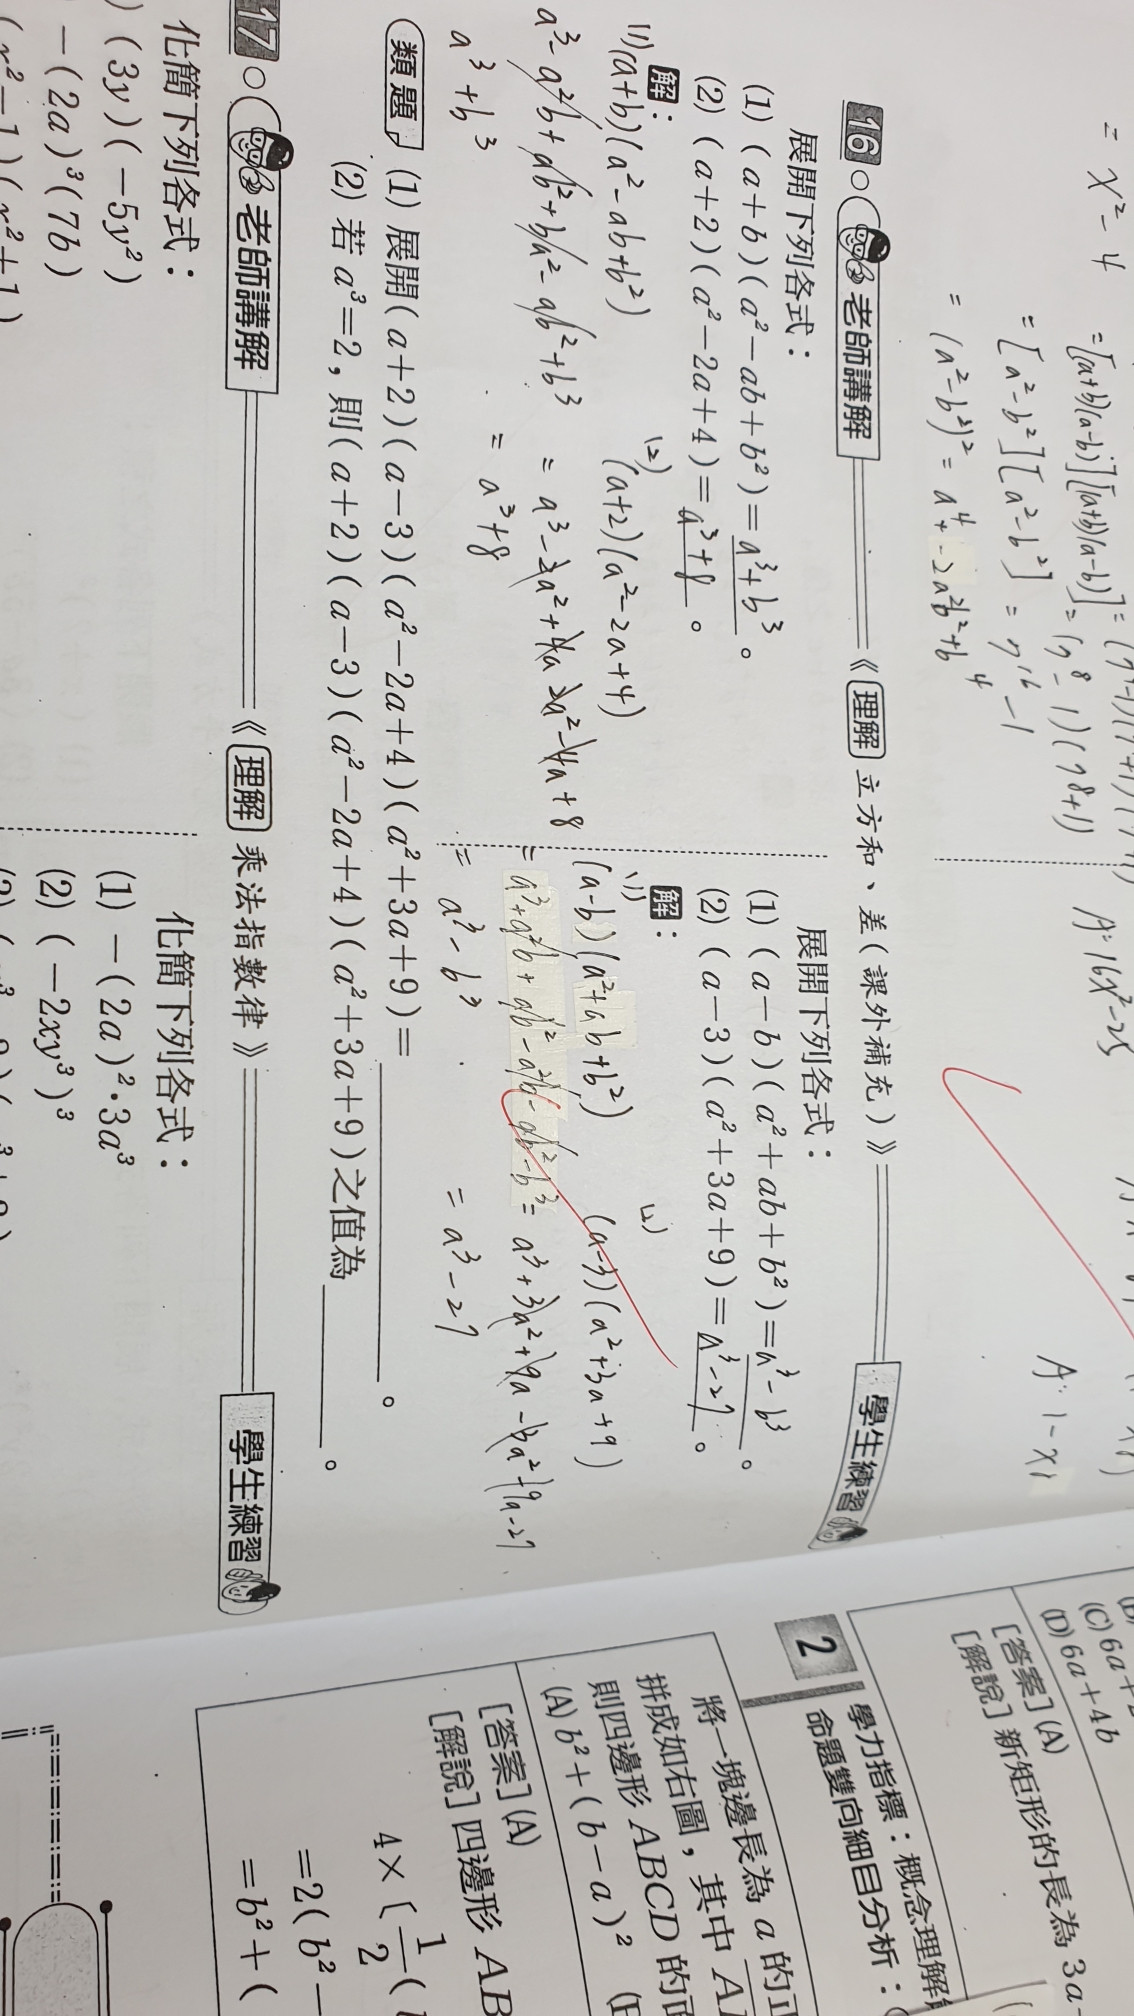 = x² - 4
= [(a+b)(a-b)][(a+b)(a-b)]
= [a²-b²][a²-b²]
= (a²-b²)² = a⁴ + -2a²b² + b⁴
= (7⁸-1)(7⁸+1)
= 7¹⁶ - 1
A: 16x²-25
16 老師講解 《理解 立方和、差(課外補充)》 學生練習
展開下列各式：
(1) (a+b)(a²-ab+b²)=a³+b³。
(2) (a+2)(a²-2a+4)=a³+8。
解：
(1) (a+b)(a²-ab+b²)
a³-a²b+ab²+ba²-ab²+b³
a³+b³
(2) (a+2)(a²-2a+4)
= a³-2a²+4a 2a²-4a+8
= a³+8
展開下列各式：
(1) (a-b)(a²+ab+b²)=a³-b³。
(2) (a-3)(a²+3a+9)=a³-27。
解：
(1) (a-b)(a²+ab+b²)
= a³+a²b+ab²-a²b-ab²-b³
= a³-b³
(a-3)(a²+3a+9)
= a³+3a²+9a-3a²+9a-27
= a³-27
類題 (1) 展開(a+2)(a-3)(a²-2a+4)(a²+3a+9)=。
(2) 若a³=2，則(a+2)(a-3)(a²-2a+4)(a²+3a+9)之值為。
17 老師講解 《理解 乘法指數律》 學生練習
化簡下列各式：
(3y)(-5y²)
-(2a)³(7b)
(x²-1)(x²+1)
化簡下列各式：
(1) -(2a)²·3a³
(2) (-2xy³)³
(D) 6a+4b
[答案] (A)
[解說] 新矩形的長為 3a
2 學力指標：概念理解
命題雙向細目分析：
將一塊邊長為 a 的
拼成如右圖，其中
則四邊形 ABCD 的
(A) b²+(b-a)²
[答案] (A)
[解說] 四邊形 AB
=2(b²-
=b²+(